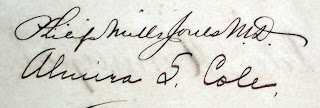 Philip Mills Jones M.D.
Almira S. Cole.